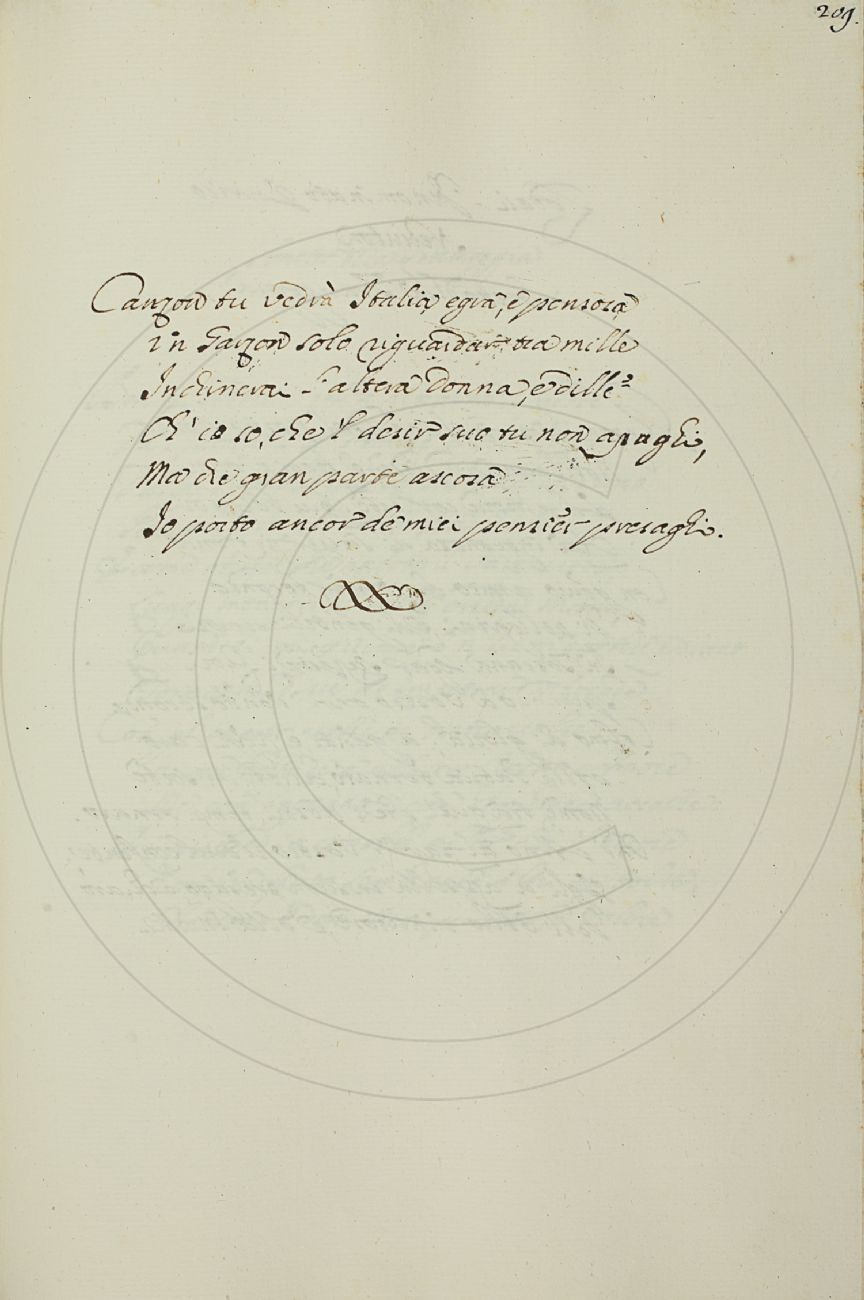 209.
Canzon tu vedrà Italia, egra, e pensosa
in Garzon solo riguardar tra mille
Inchinerai l'altera donna, e dille
Ch' io so, che 'l desir suo tu non apaghi,
Ma che gran parte ascosa
Io porto ancor de miei pensier presaghi.